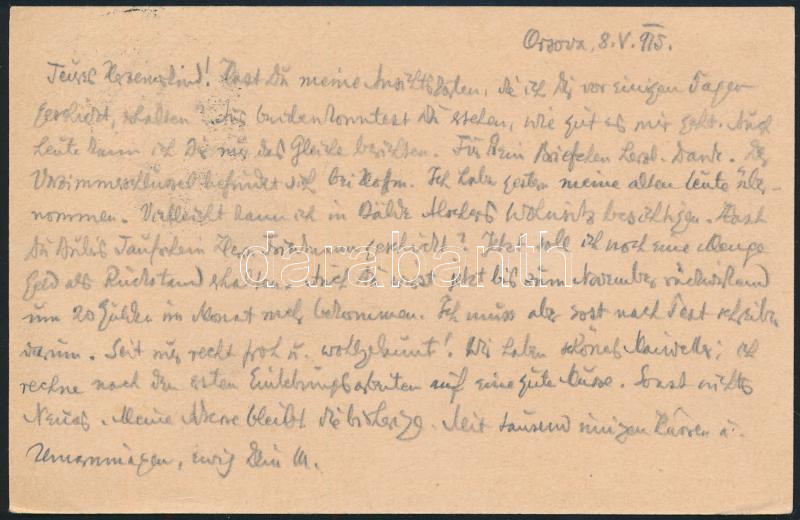 Orsova, 8.V.915.
Teures Herzenskind! Hast Du meine Ansichtskarten, die ich Dir vor einigen Tagen
geschickt, erhalten? Aus beiden konntest Du ersehen, wie gut es mir geht. Auch
heute kann ich Dir nur das Gleiche berichten. Für Dein Briefchen herzl. Dank. Der
befindet sich bei Hoffm. Ich habe gestern meine alten Leute über-
nommen. Vielleicht kann ich in Bälde Wohnsitz besichtigen. Hast
Du Taufschein Herrn geschickt? Jetzt soll ich noch eine Menge
Geld als Rückstand erhalten. Auch Du wirst jetzt bis zum November rückwirkend
um 20 Gulden im Monat mehr bekommen. Ich muss aber erst nach Pest schreiben
darum. Seid nur recht froh u. wohlgelaunt! Wir haben schönes Maiwetter; ich
rechne nach den ersten Einlebungsarbeiten auf eine gute Musse. Sonst nichts
Neues. Meine Adresse bleibt die bisherige. Mit tausend innigen Küssen u.
Umarmungen, ewig Dein M.
darabanth